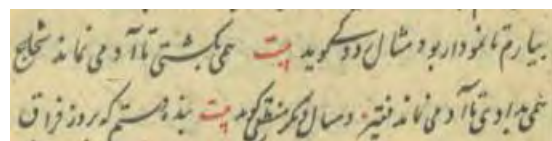 بیارم تا نمودار بود مثال رودکی گوید بیت همی بکشتی تا آدمی نماند شجاع
همی بدادی تا آدمی نماند فقیر و مثال دیگر منطقی گوید بیت بنده هستم که روز فراق